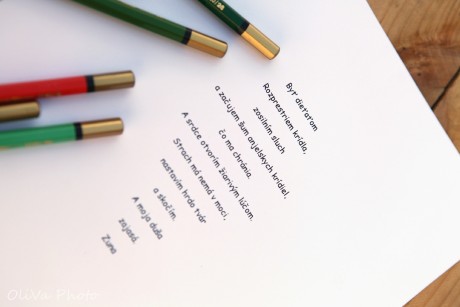 Byť dieťaťom
Rozprestriem krídla,
zosilním sluch
a začujem šum anjelskych krídiel,
čo ma chránia.
A srdce otvorím žiarivým lúčom.
Strach má nemá v moci,
nastavím hrdo tvár
a skočím.
A moja duša
zajasá.
Zuna
OliVa Photo